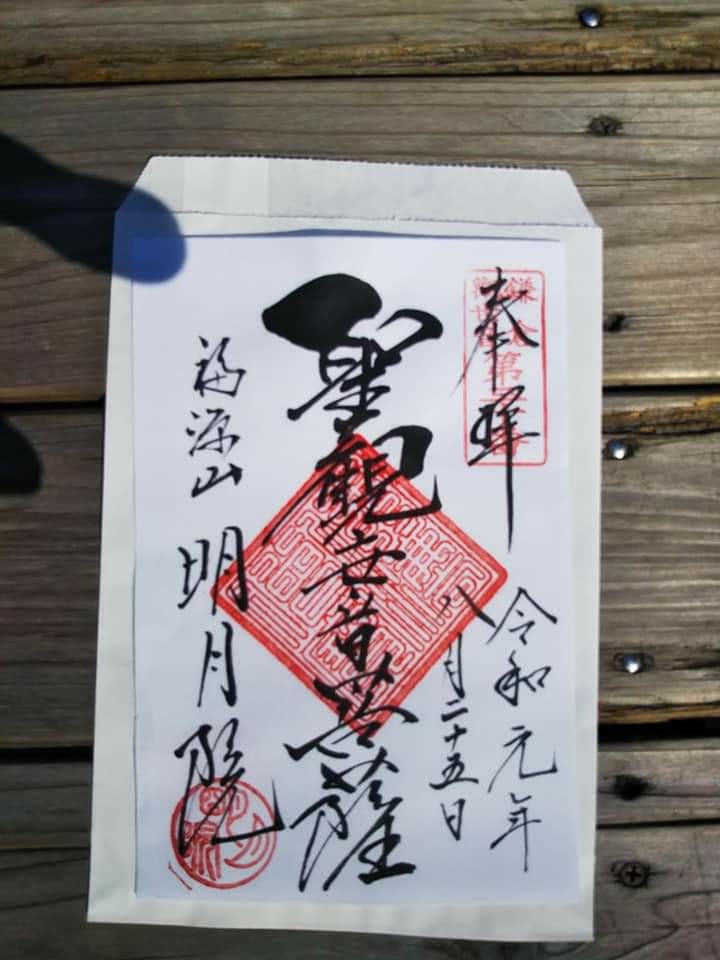 奉拝
令和元年
八月二十五日
聖観世音菩薩
福源山 明月院